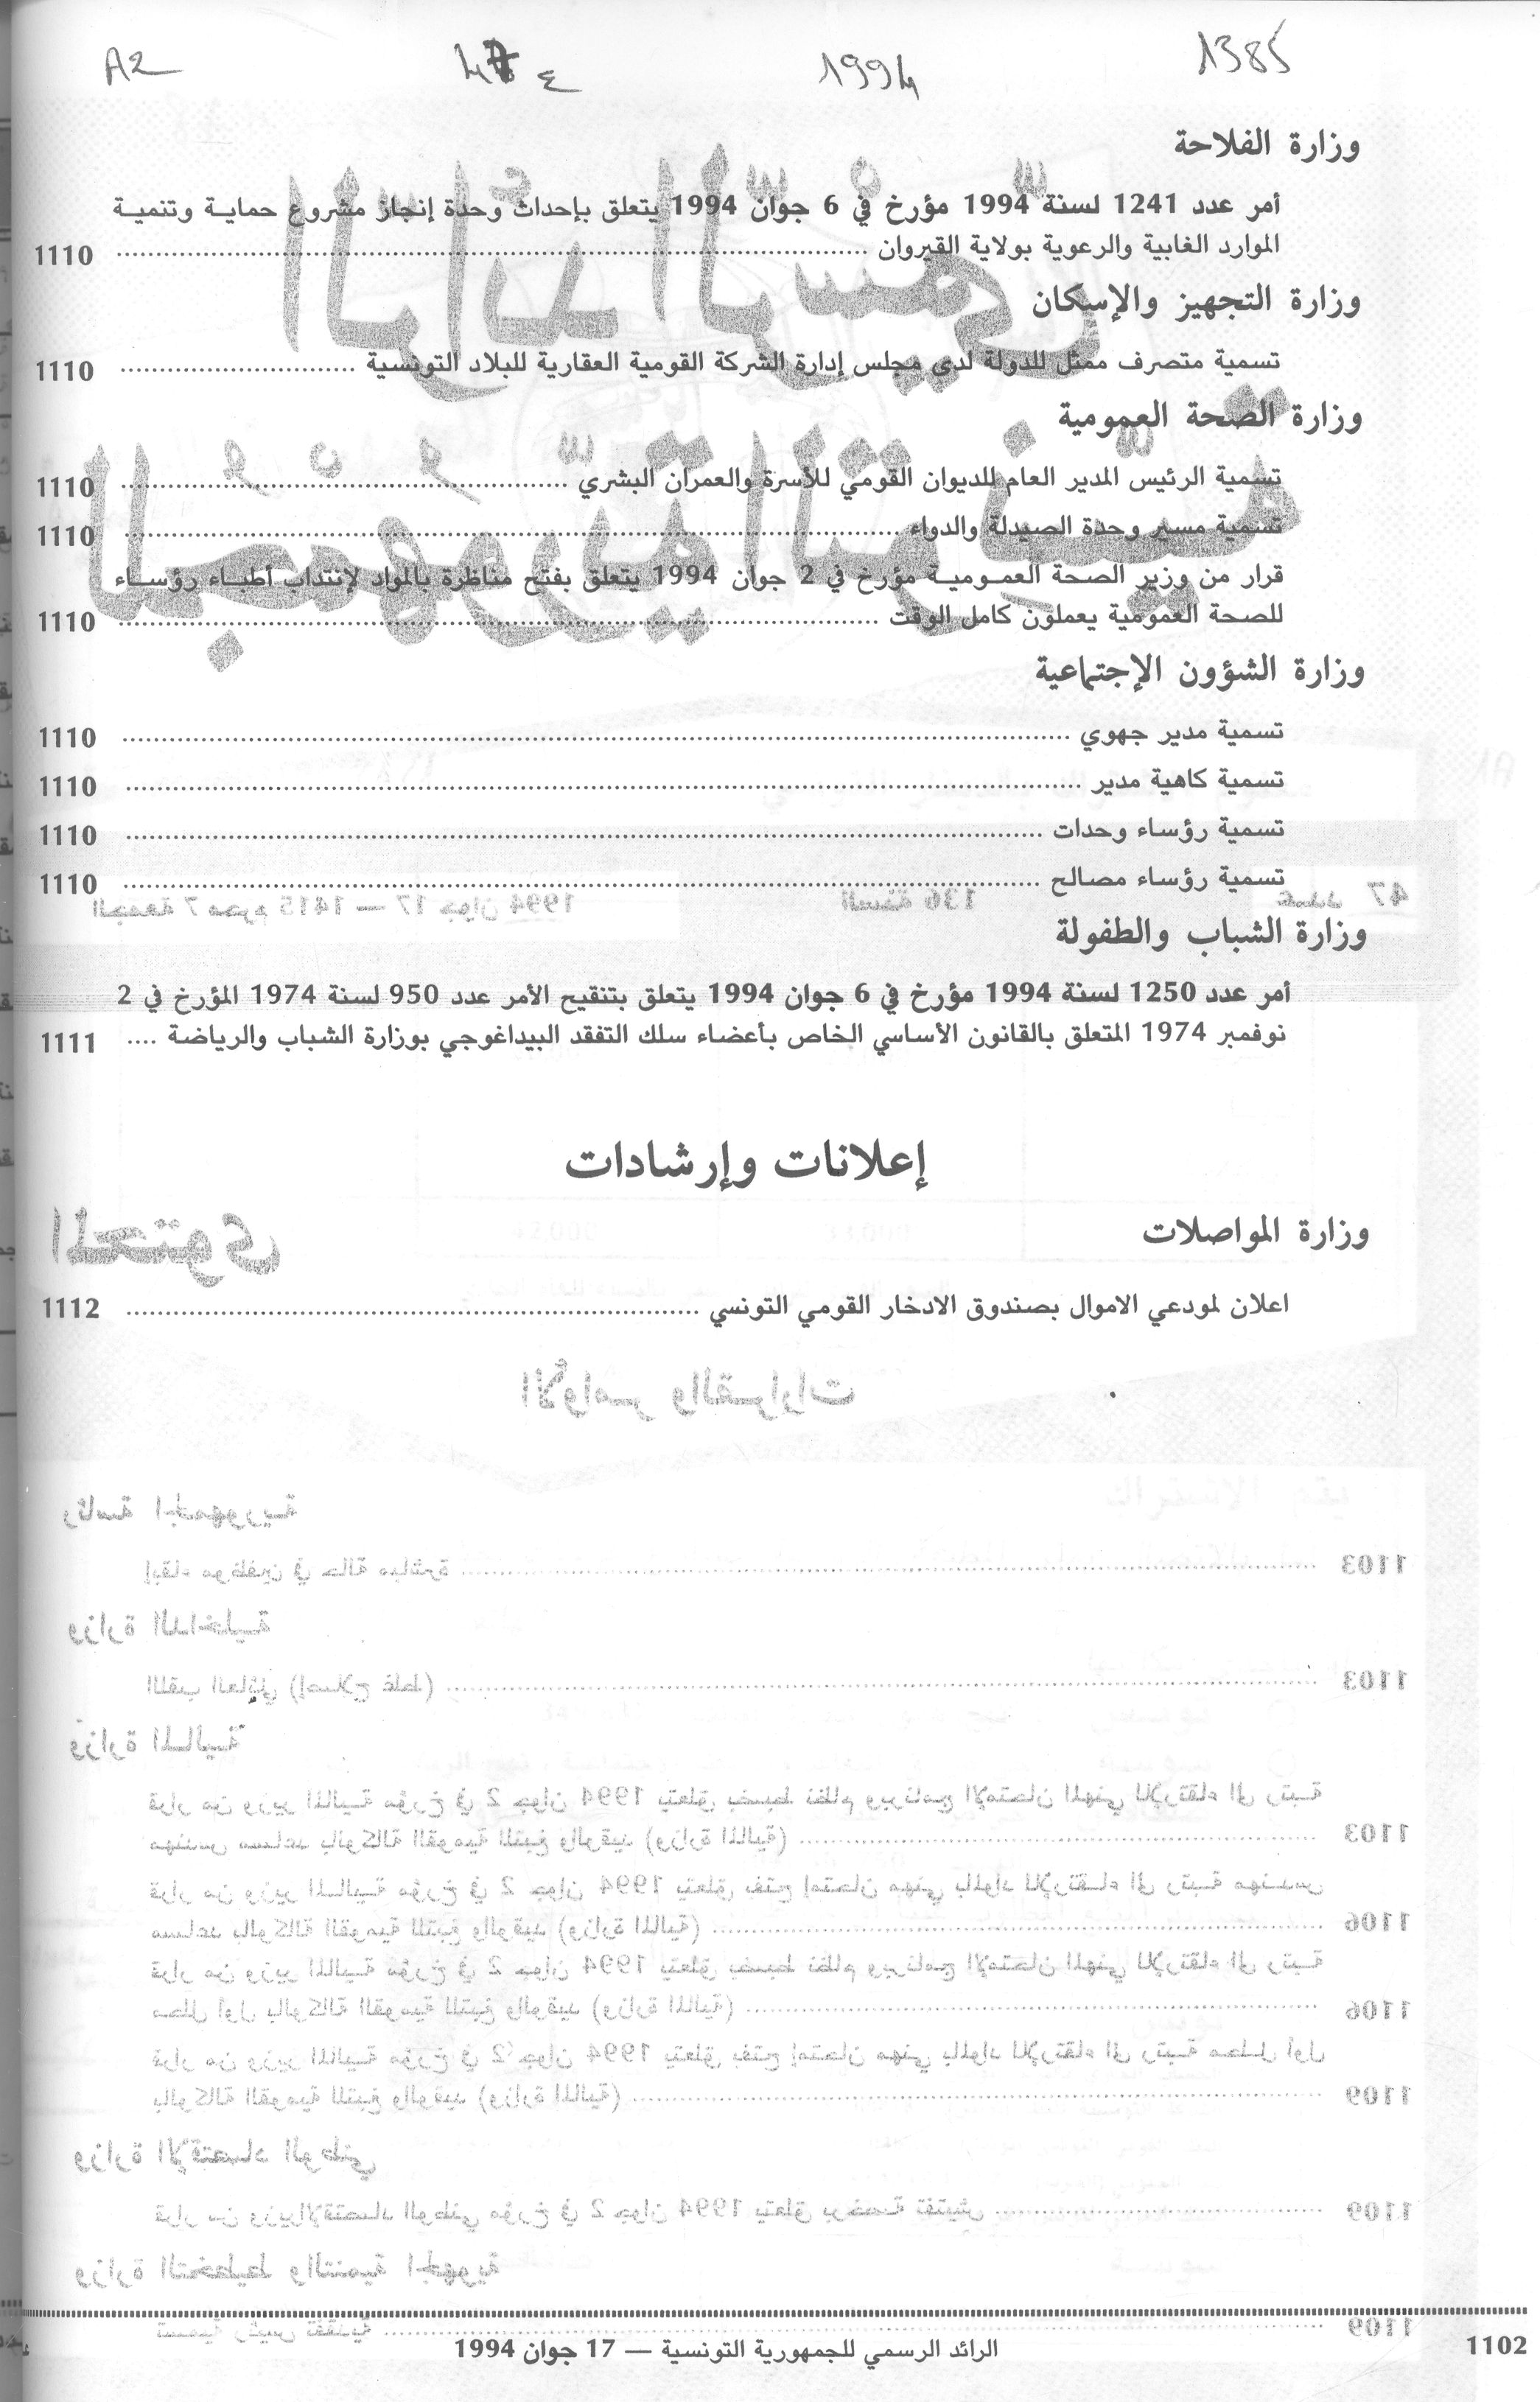 A2 47 ع 1994 1385
وزارة الفلاحة
أمر عدد 1241 لسنة 1994 مؤرخ في 6 جوان 1994 يتعلق بإحداث وحدة إنجاز مشروع حماية وتنمية
الموارد الغابية والرعوية بولاية القيروان ........ 1110
وزارة التجهيز والإسكان
تسمية متصرف ممثل للدولة لدى مجلس إدارة الشركة القومية العقارية للبلاد التونسية ........ 1110
وزارة الصحة العمومية
تسمية الرئيس المدير العام للديوان القومي للأسرة والعمران البشري ........ 1110
تسمية مسير وحدة الصيدلة والدواء ........ 1110
قرار من وزير الصحة العمومية مؤرخ في 2 جوان 1994 يتعلق بفتح مناظرة بالمواد لإنتداب أطباء رؤساء
للصحة العمومية يعملون كامل الوقت ........ 1110
وزارة الشؤون الإجتماعية
تسمية مدير جهوي ........ 1110
تسمية كاهية مدير ........ 1110
تسمية رؤساء وحدات ........ 1110
تسمية رؤساء مصالح ........ 1110
وزارة الشباب والطفولة
أمر عدد 1250 لسنة 1994 مؤرخ في 6 جوان 1994 يتعلق بتنقيح الأمر عدد 950 لسنة 1974 المؤرخ في 2
نوفمبر 1974 المتعلق بالقانون الأساسي الخاص بأعضاء سلك التفقد البيداغوجي بوزارة الشباب والرياضة .... 1111
إعلانات وإرشادات
وزارة المواصلات
اعلان لمودعي الاموال بصندوق الادخار القومي التونسي ........ 1112
1102 الرائد الرسمي للجمهورية التونسية — 17 جوان 1994